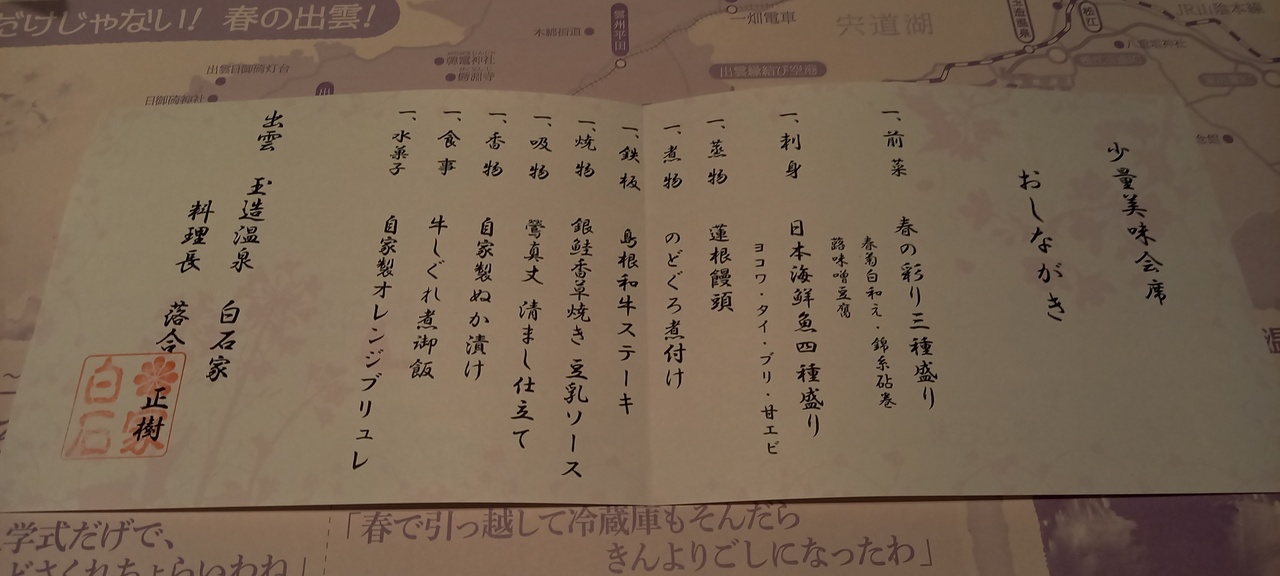 だけじゃない！ 春の出雲！
木綿街道
雲州平田
一畑電車
宍道湖
松江
JR山陰本線
出雲日御碕灯台
日御碕神社
韓竈神社
鰐淵寺
出雲縁結び空港
少量美味会席
おしながき
一、前菜 春の彩り三種盛り
春菊白和え・錦糸砧巻
蕗味噌豆腐
一、刺身 日本海鮮魚四種盛り
ヨコワ・タイ・ブリ・甘エビ
一、蒸物 蓮根饅頭
一、煮物 のどぐろ煮付け
一、鉄板 島根和牛ステーキ
一、焼物 銀鮭香草焼き 豆乳ソース
一、吸物 鶯真丈 清まし仕立て
一、香物 自家製ぬか漬け
一、食事 牛しぐれ煮御飯
一、水菓子 自家製オレンジブリュレ
出雲 玉造温泉 白石家
料理長 落合 正樹
白石家
学式だけで、
どさくれちょらいわね」
「春で引っ越して冷蔵庫もそんだら
きんよりごしになったわ」